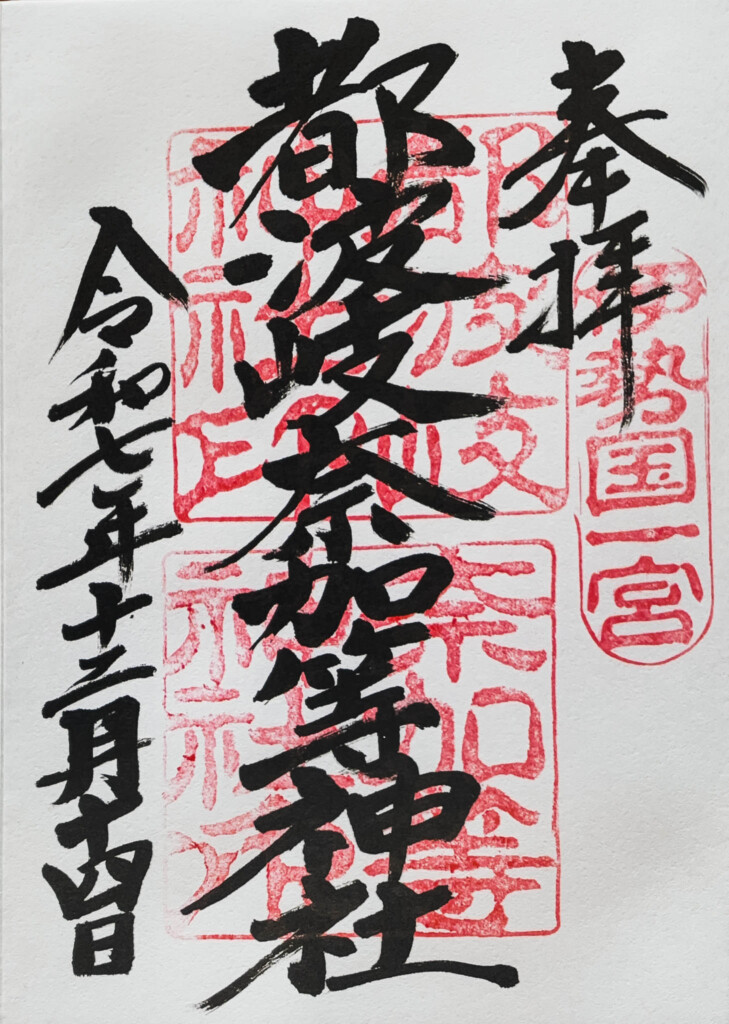 奉拝
伊勢国一宮
都波岐奈加等神社
都波岐
神社印
奈加等
神社
令和七年十二月十四日